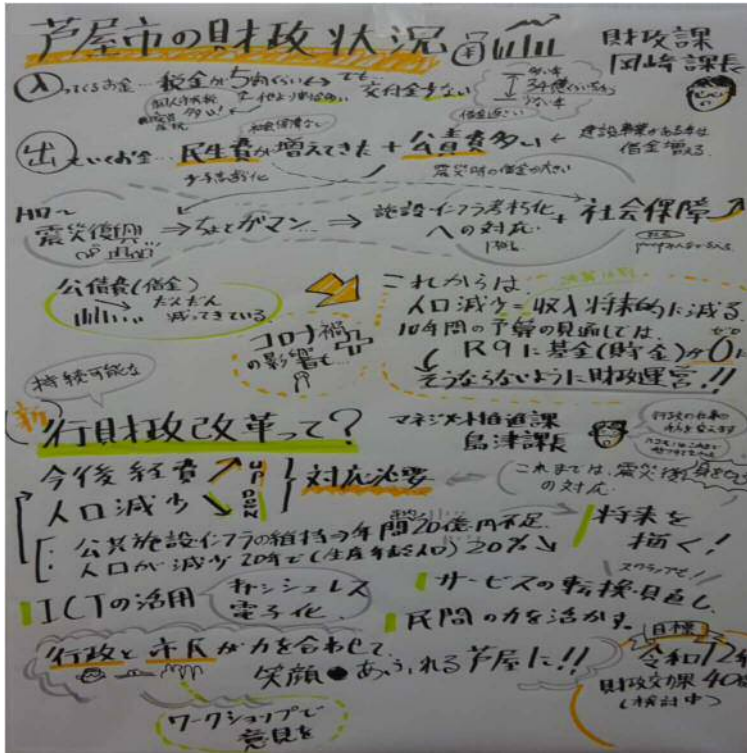 芦屋市の財政状況
財政課
岡崎課長
入ってくるお金… 税金が5割くらい でも… 交付金少ない
他より割合多い
借金返さい
出ていくお金… 民生費が増えてきた + 公債費多い ← 建設事業がある年は
借金増える
少子高齢化
震災時の借金が大きい
震災復興 ⇒ ちょとガマン… ⇒ 施設・インフラ老朽化 + 社会保障
への対応
公債費(借金)
だんだん
減ってきている
これからは
人口減少=収入将来的に減る。
10年間の予算の見通しでは、
R9に基金(貯金)が0に
そうならないように財政運営!!
コロナ禍
の影響も…
持続可能な
新 行財政改革って?
マネジメント推進課
島津課長
今後 経費 UP
人口減少 DOWN
対応必要
これまでは、震災後
の対応
公共施設インフラの維持の年間20億円不足
人口が減少 20年で(生産年齢人口)20%↘
将来を
描く!
ICTの活用
キャッシュレス
電子化
サービスの転換・見直し
民間の力を活かす。
行政と市民が力を合わせて
笑顔●あふれる芦屋に!!
ワークショップで
意見を
目標
令和12年
財政効果40億
(検討中)